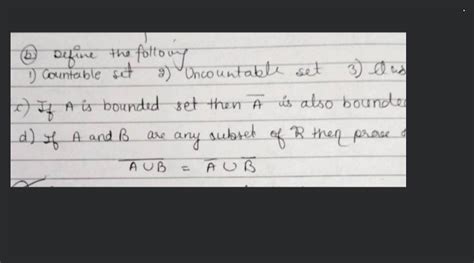 (b) Define the following
1) Countable set 2) Uncountable set 3)
c) If A is bounded set then A̅ is also bounde
d) If A and B are any subset of R then prove
A̅∪̅B̅ = A̅ ∪ B̅